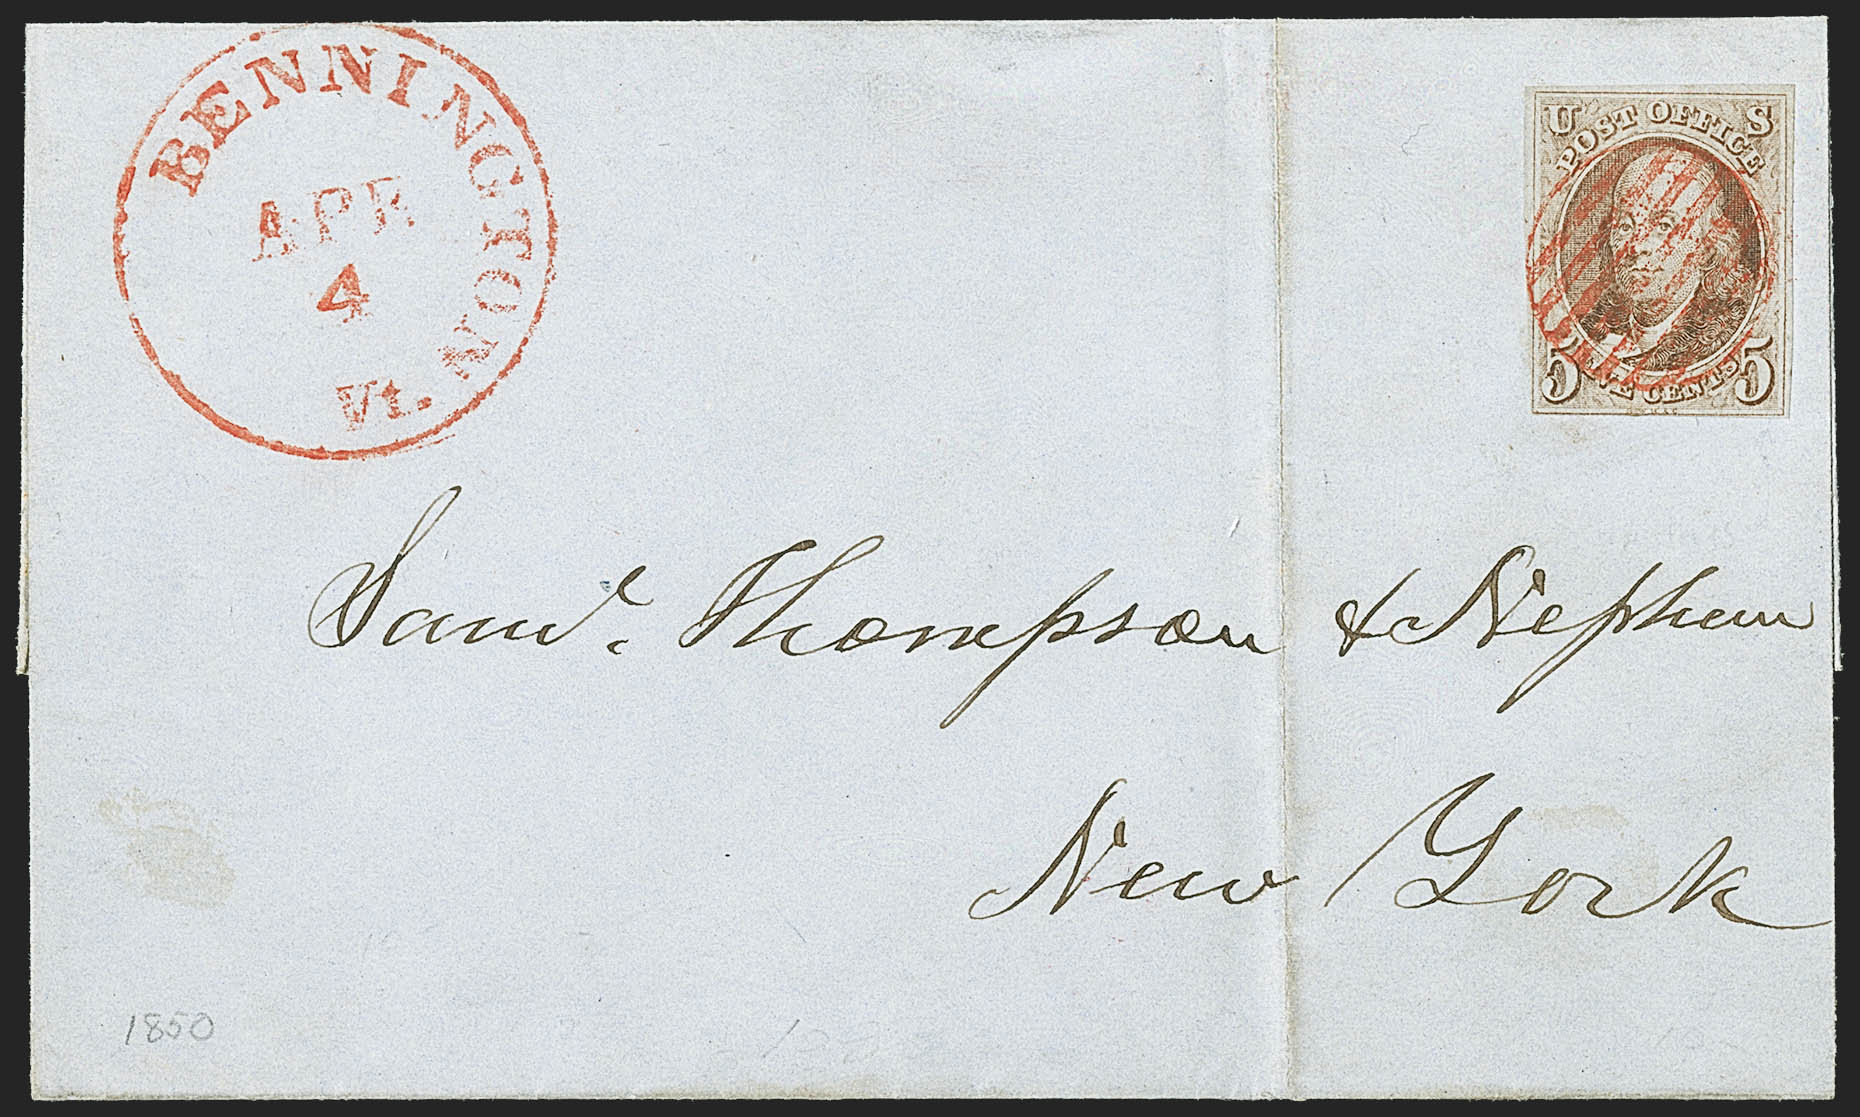 BENNINGTON
APR
4
Vt.
U S
POST OFFICE
5 FIVE CENTS 5
Saml. Thompson & Nephew
New York
1850